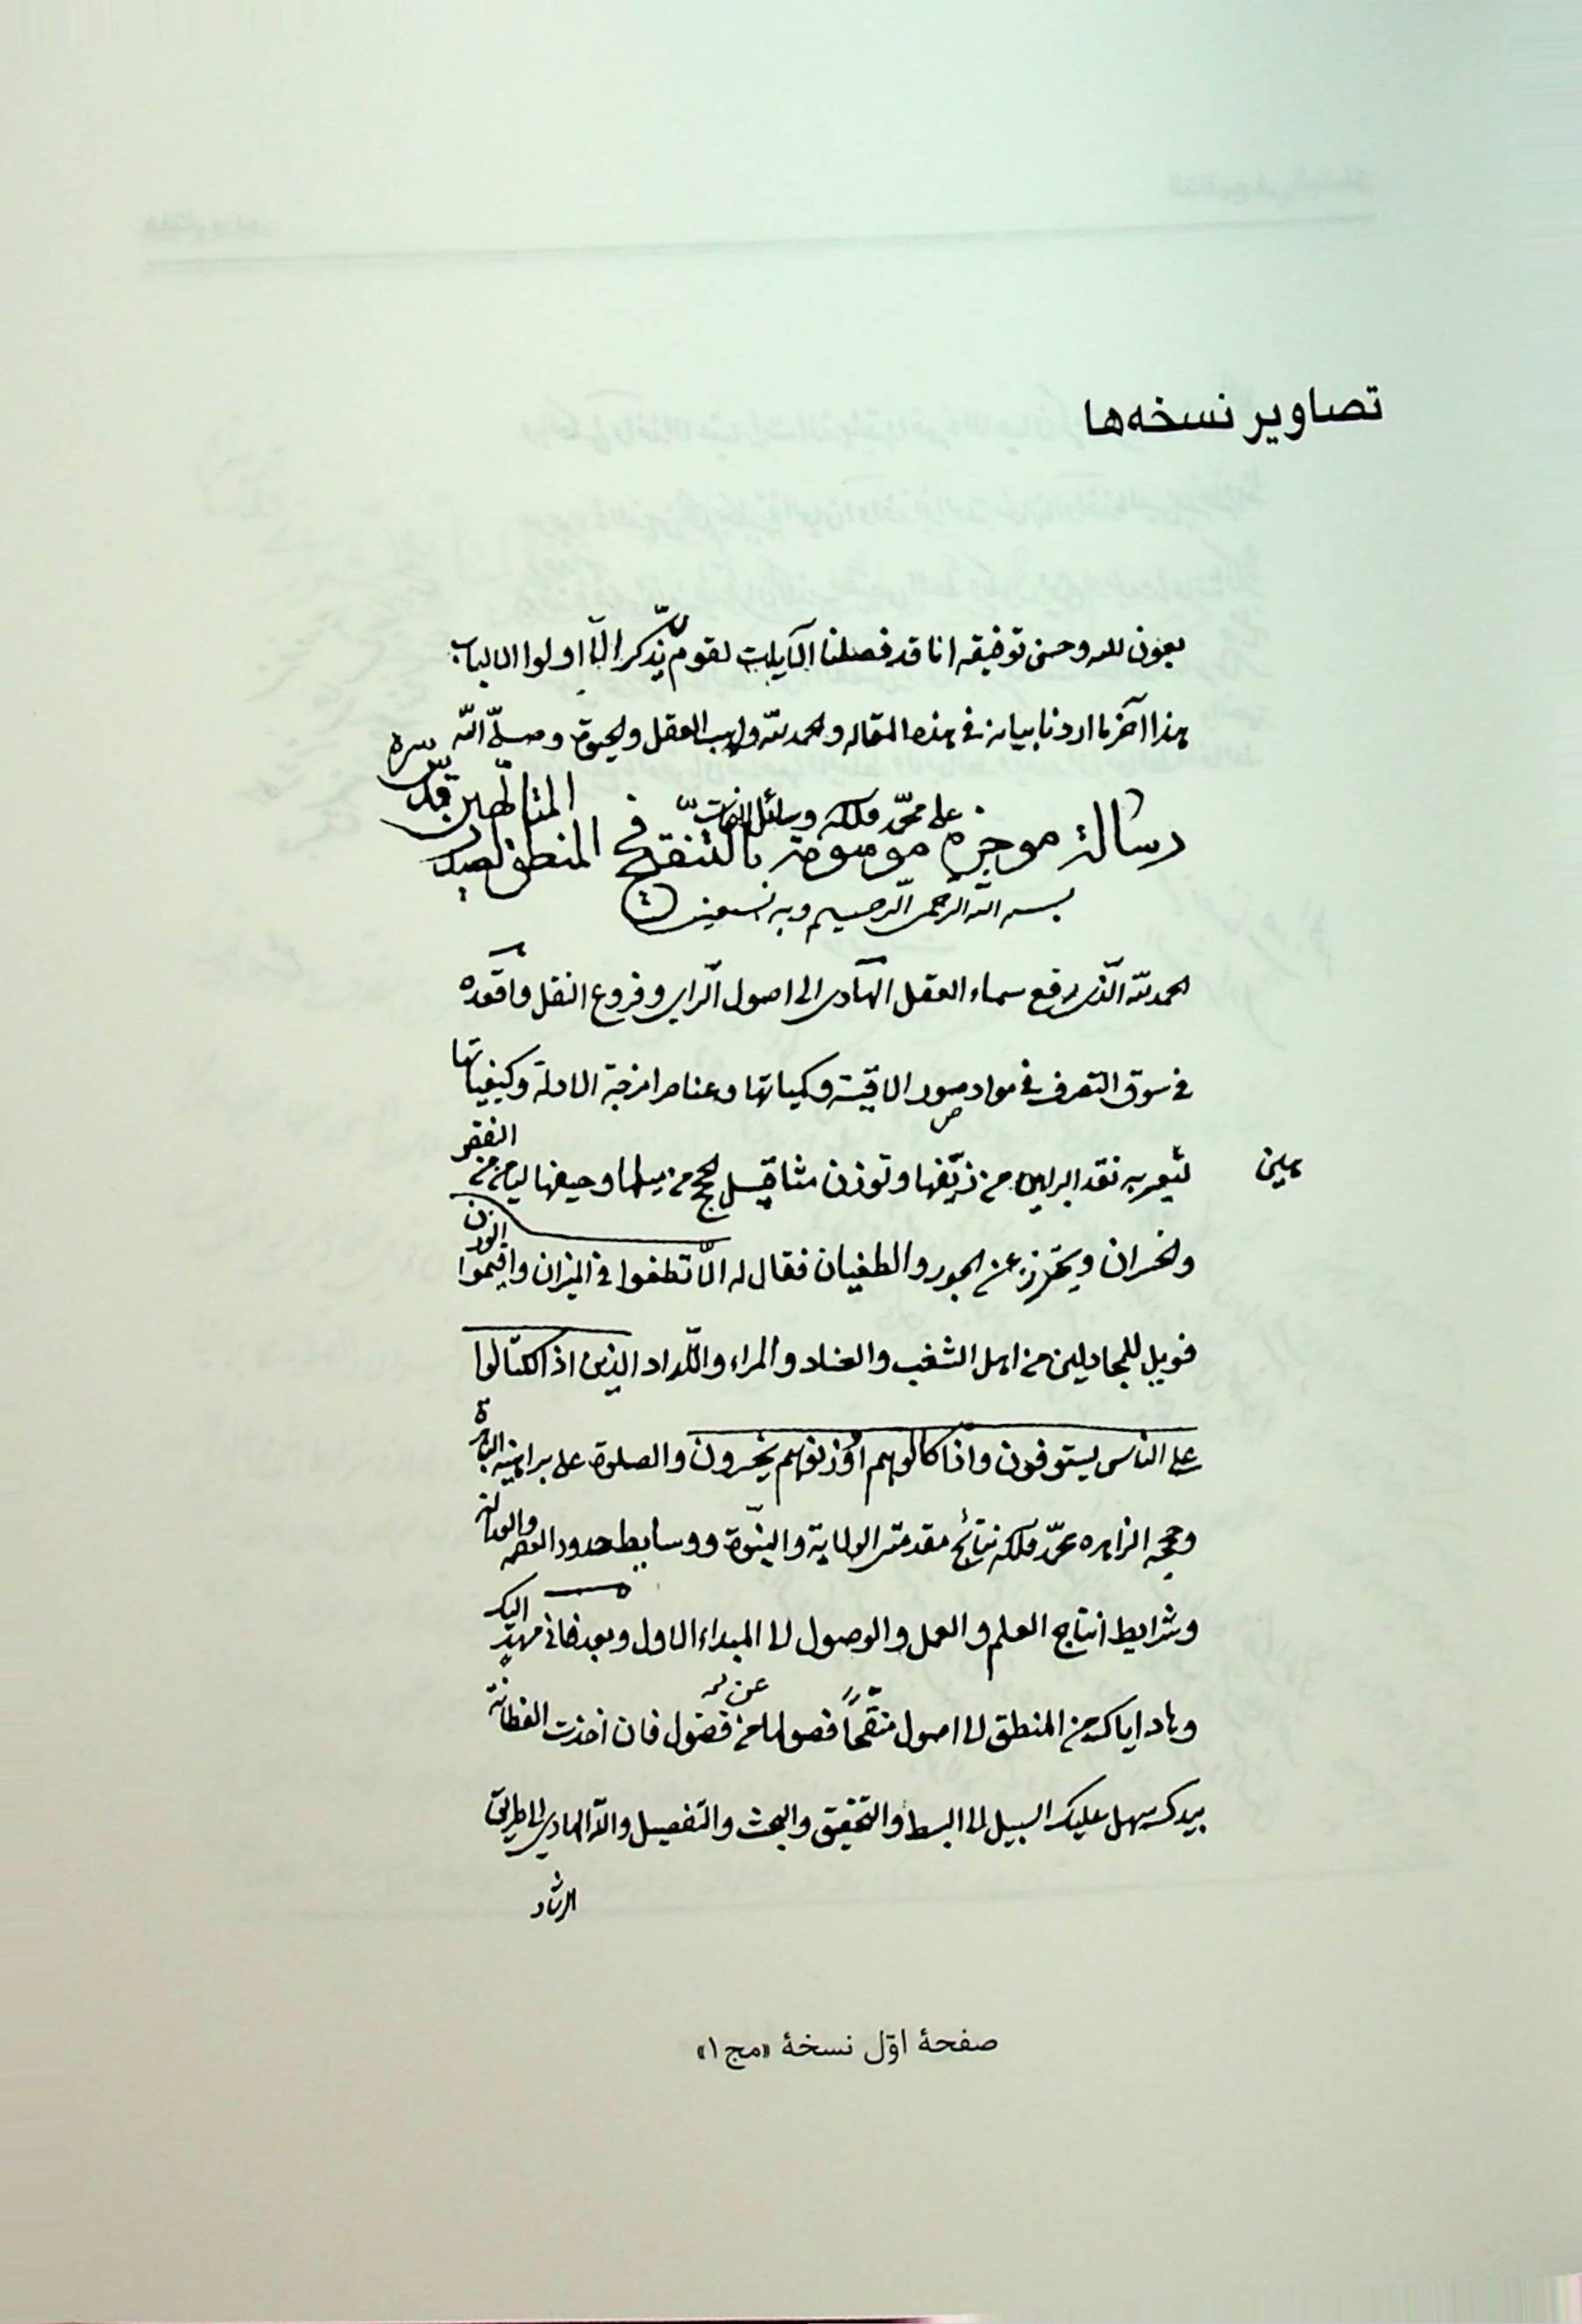 تصاویر نسخه‌ها
بعون الله وحسن توفیقه انا قد فصلنا الآیات لقوم یذّکر الّا اولوا الالباب
هذا آخر ما اردنا بیانه فی هذه المقاله والحمد لله واهب العقل والحیوة وصلّی الله
علی محمّد وآله وسائل
رسالة موجزه موسومة بالتنقیح فی المنطق لصدر
المتالّهین قدّس سره
بسم الله الرحمن الرّحیم وبه نستعین
الحمد لله الّذی رفع سماء العقل الهادی الی اصول الرای وفروع النقل واقعده
فی سوق التصرف فی مواد صور الاقیسة وکمیاتها وعناصر امزجة الادلة وکیفیاتها
لیعیر به نقد البراهین من زیّفها وتوزن مثاقیل الحجج من میلها وحیفها لیامن من
النقص
هلین
والخسران ویحترز عن الجور والطغیان فقال له الّا تطغوا فی المیزان واقیموا
الوزن
فویل للمجادلین من اهل الشغب والعناد والمراء واللّداد الذین اذا اکتالوا
علی الناس یستوفون واذا کالوهم اوزنوهم یخسرون والصلوة علی براهینه الباهرة
وحججه الزاهره محمّد وآله نتائج مقدمتی الولایة والنبّوة ووسایط حدود العصمه
والعدالة
وشرایط انتاج العلم والعمل والوصول الی المبداء الاول وبعد فانی مهدٍ
الیک
وهاد ایاک من المنطق الی اصول منقّحاً فصولها من فضول فان اخذت الفطانة
عن
بیدک سهل علیک السبیل الی البسط والتحقیق والبحث والتفصیل والله الهادی الی طریق
الرشاد
صفحهٔ اوّل نسخهٔ «مج۱»